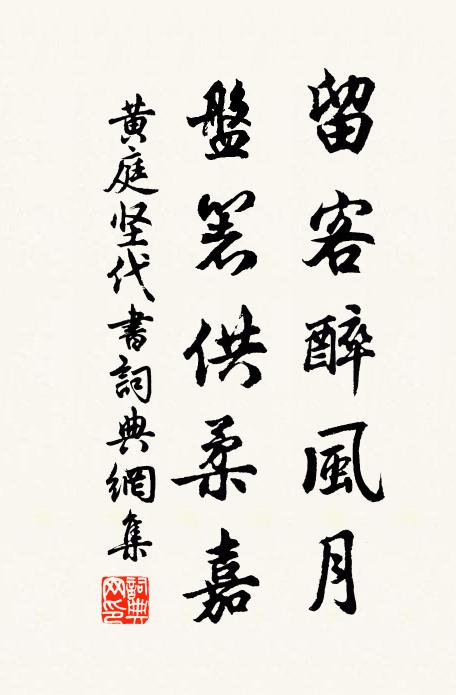 留客醉風月
盤箸供柔嘉
黄庭坚代書詞典網集
詞典网印